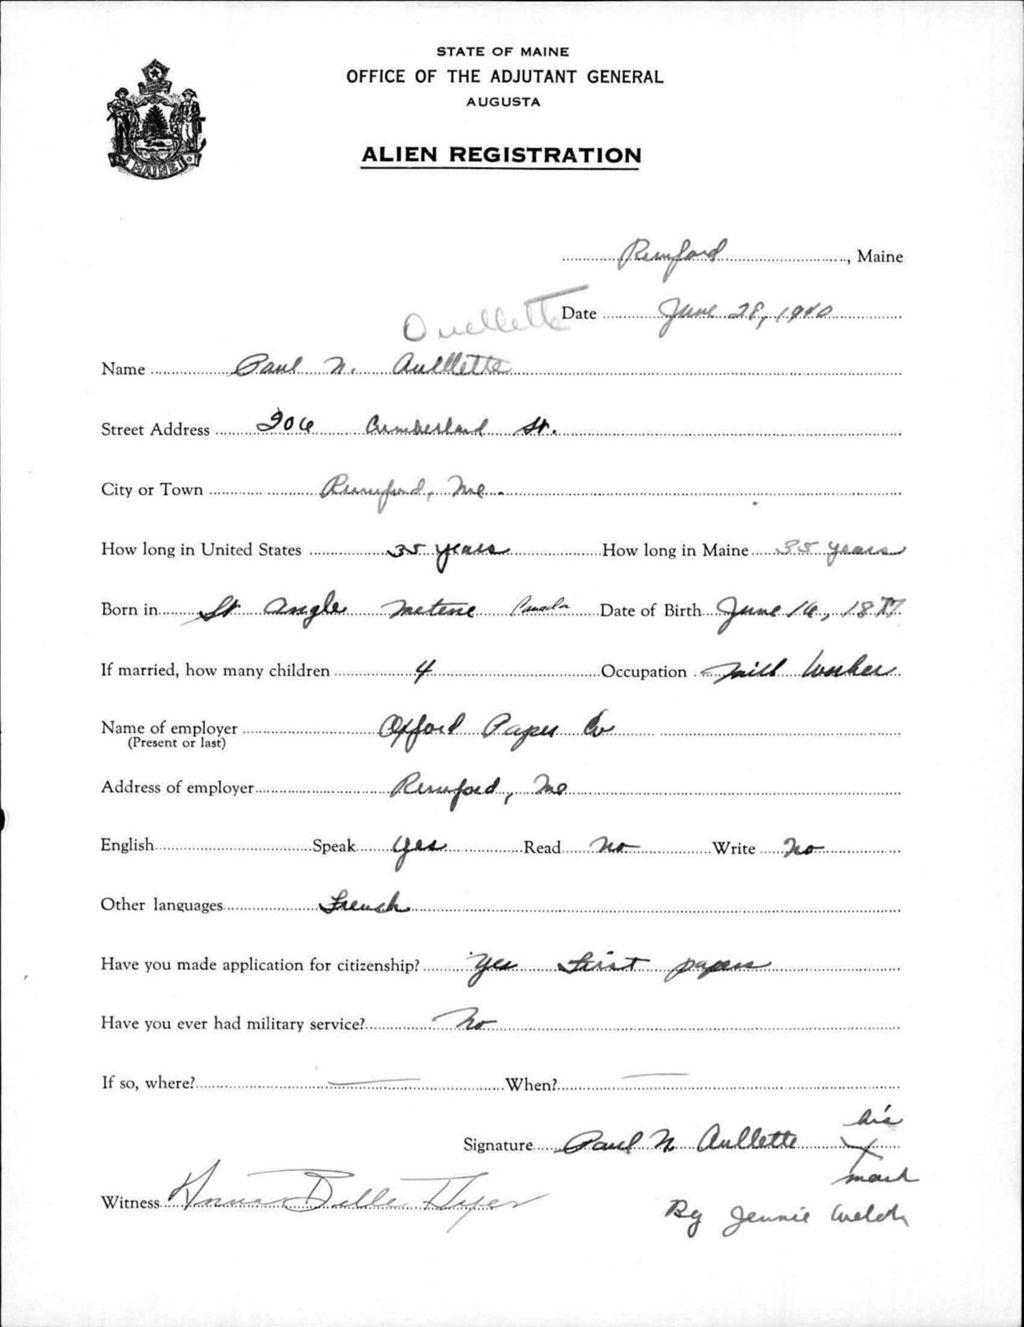 STATE OF MAINE
OFFICE OF THE ADJUTANT GENERAL
AUGUSTA
MAINE
ALIEN REGISTRATION
Rumford, Maine
Ouellette
Date June 28, 1940
Name Paul N. Aullette
Street Address 206 Cumberland St.
City or Town Rumford, Me.
How long in United States 35 years How long in Maine 35 years
Born in St Angle Matene Canada Date of Birth June 16, 1877
If married, how many children 4 Occupation Mill Worker
Name of employer Oxford Paper Co
(Present or last)
Address of employer Rumford, Me
English Speak Yes Read No Write No
Other languages French
Have you made application for citizenship? Yes First papers
Have you ever had military service? No
If so, where? — When? —
his
Signature Paul N Aullette X
mark
Witness Anna Belle Thyer
By Jennie Welch